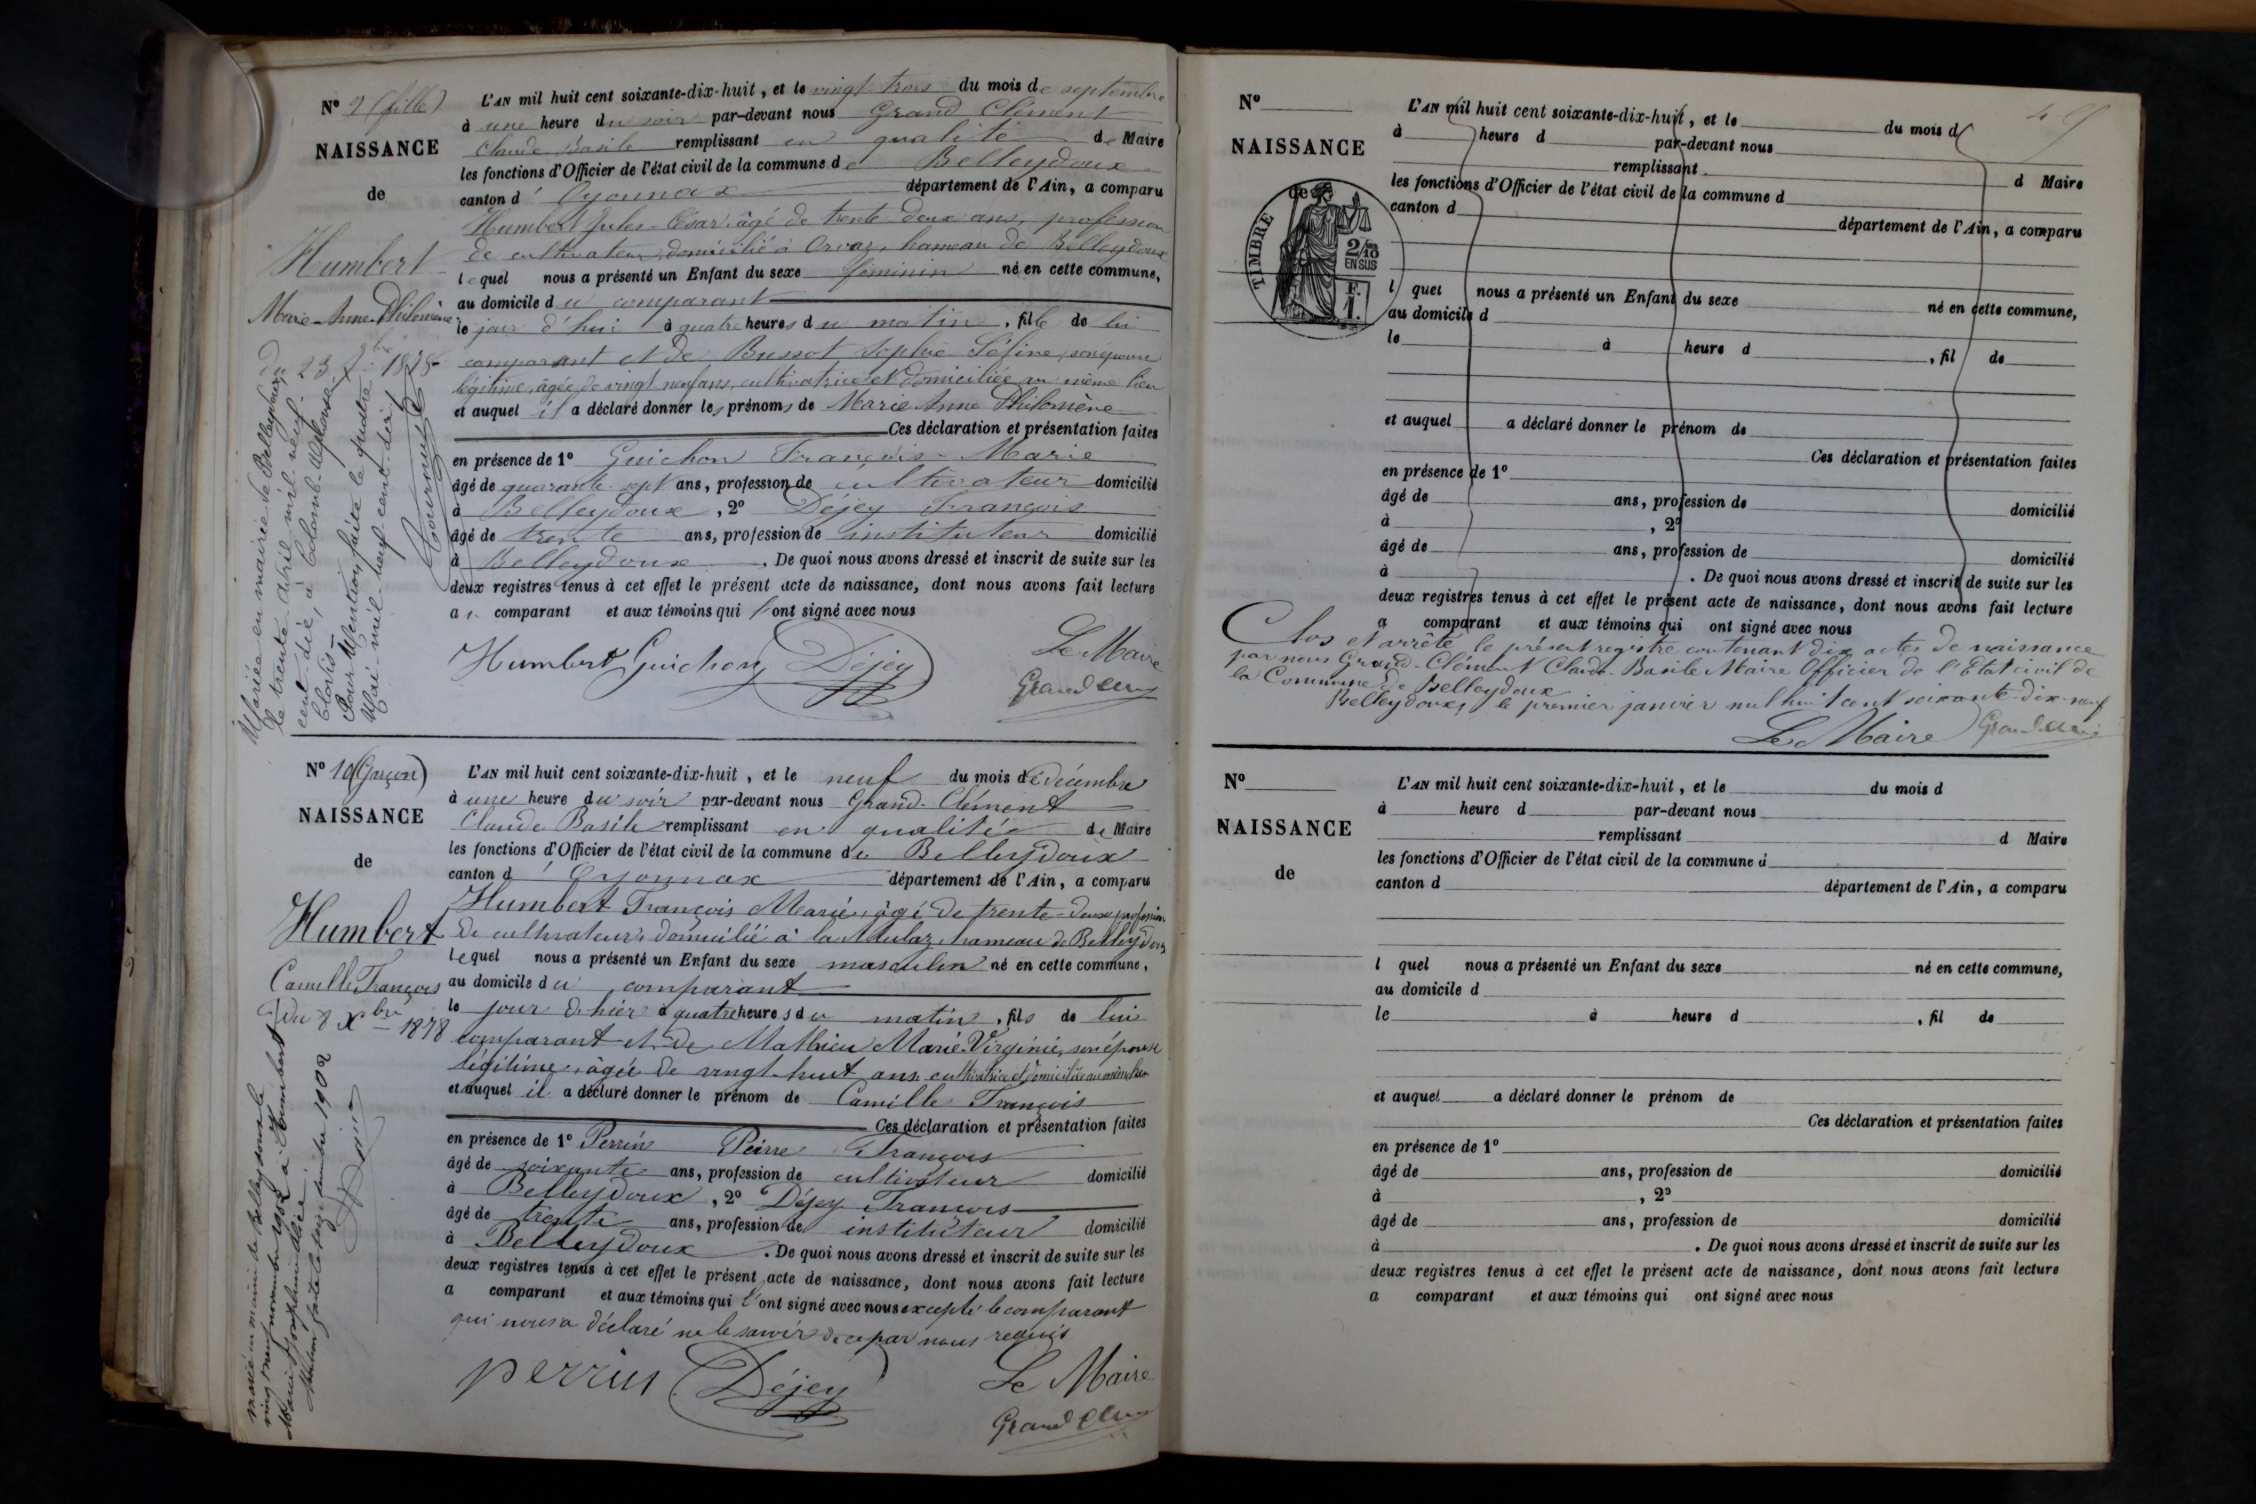 N° 9 (fille)
NAISSANCE
de
Humbert
Marie-Anne-Philomène
23 7bre 1878
Mariée en mairie de Belleydoux
le trente avril mil neuf
cent dix, à Colomb-Alphonse-
Clovis
Pour Mention faite le quatre
Mai mil neuf cent dix
L'AN mil huit cent soixante-dix-huit, et le vingt trois du mois de septembre
à une heure du soir par-devant nous Grand Clément
Claude Basile remplissant en qualité de Maire
les fonctions d'Officier de l'état civil de la commune de Belleydoux
canton d'Oyonnax département de l'Ain, a comparu
Humbert Jules-César, âgé de trente deux ans, profession
de cultivateur, domicilié à Orvaz, hameau de Belleydoux
lequel nous a présenté un Enfant du sexe féminin né en cette commune,
au domicile du comparant
le jour d'hui à quatre heures du matin, fille de lui
comparant et de Bussot Sophie Séfine, son épouse
légitime, âgée de vingt neuf ans, cultivatrice et domiciliée au même lieu
et auquel il a déclaré donner les prénoms de Marie Anne Philomène
Ces déclaration et présentation faites
en présence de 1° Guichon François-Marie
âgé de quarante sept ans, profession de cultivateur domicilié
à Belleydoux, 2° Déjey François
âgé de trente ans, profession de instituteur domicilié
à Belleydoux. De quoi nous avons dressé et inscrit de suite sur les
deux registres tenus à cet effet le présent acte de naissance, dont nous avons fait lecture
au comparant et aux témoins qui l'ont signé avec nous
Humbert Guichon Déjey
Le Maire
Grand Clém
N° 10 (Garçon)
NAISSANCE
de
Humbert
Camille François
du 8 Xbre 1878
Marié en mairie de Belleydoux le
vingt neuf novembre 1902 à Humbert
Marie Joséphine Alice
Mention faite le seize décembre 1902
L'AN mil huit cent soixante-dix-huit, et le neuf du mois de décembre
à une heure du soir par-devant nous Grand-Clément
Claude Basile remplissant en qualité de Maire
les fonctions d'Officier de l'état civil de la commune de Belleydoux
canton d'Oyonnax département de l'Ain, a comparu
Humbert François Marie, âgé de trente-deux, profession
de cultivateur, domicilié à la Mulaz, hameau de Belleydoux
lequel nous a présenté un Enfant du sexe masculin né en cette commune,
au domicile du comparant
le jour d'hier à quatre heures du matin, fils de lui
comparant et de Mathieu Marie Virginie, son épouse
légitime, âgée de vingt-huit ans cultivatrice et domiciliée au même lieu
et auquel il a déclaré donner le prénom de Camille François
Ces déclaration et présentation faites
en présence de 1° Perrin Pierre François
âgé de soixante ans, profession de cultivateur domicilié
à Belleydoux, 2° Déjey François
âgé de trente ans, profession de instituteur domicilié
à Belleydoux. De quoi nous avons dressé et inscrit de suite sur les
deux registres tenus à cet effet le présent acte de naissance, dont nous avons fait lecture
a comparant et aux témoins qui l'ont signé avec nous excepté le comparant
qui nous a déclaré ne le savoir de ce par nous requis
perrin Déjey
Le Maire
Grand Clém
49
N°
NAISSANCE
de
TIMBRE
2/10
EN SUS
F.
1.
L'AN mil huit cent soixante-dix-huit, et le du mois d
à heure d par-devant nous
remplissant d Maire
les fonctions d'Officier de l'état civil de la commune d
canton d département de l'Ain, a comparu
l quel nous a présenté un Enfant du sexe né en cette commune,
au domicile d
le à heure d , fil de
et auquel a déclaré donner le prénom de
Ces déclaration et présentation faites
en présence de 1°
âgé de ans, profession de domicilié
à , 2°
âgé de ans, profession de domicilié
à . De quoi nous avons dressé et inscrit de suite sur les
deux registres tenus à cet effet le présent acte de naissance, dont nous avons fait lecture
a comparant et aux témoins qui ont signé avec nous
Clos et arrêté le présent registre contenant dix actes de naissance
par nous Grand-Clément Claude-Basile Maire Officier de l'État civil de
la Commune de Belleydoux
Belleydoux, le premier janvier mil huit cent soixante-dix-neuf
Le Maire Grand Clém
N°
NAISSANCE
de
L'AN mil huit cent soixante-dix-huit, et le du mois d
à heure d par-devant nous
remplissant d Maire
les fonctions d'Officier de l'état civil de la commune d
canton d département de l'Ain, a comparu
l quel nous a présenté un Enfant du sexe né en cette commune,
au domicile d
le à heure d , fil de
et auquel a déclaré donner le prénom de
Ces déclaration et présentation faites
en présence de 1°
âgé de ans, profession de domicilié
à , 2°
âgé de ans, profession de domicilié
à . De quoi nous avons dressé et inscrit de suite sur les
deux registres tenus à cet effet le présent acte de naissance, dont nous avons fait lecture
a comparant et aux témoins qui ont signé avec nous